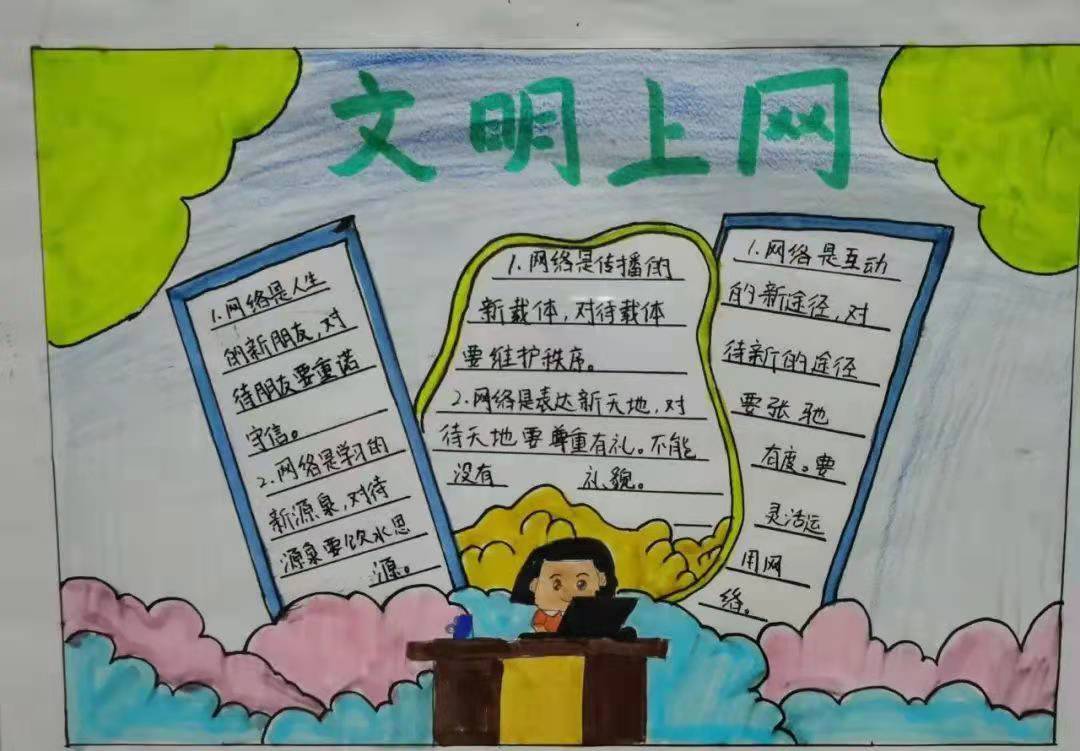 文明上网
1.网络是人生
的新朋友,对
待朋友要重诺
守信。
2.网络是学习的
新源泉,对待
源泉要饮水思
源。
1.网络是传播的
新载体,对待载体
要维护秩序。
2.网络是表达新天地,对
待天地要尊重有礼。不能
没有 礼貌。
1.网络是互动
的新途径,对
待新的途径
要张驰
有度。要
灵活运
用网
络。